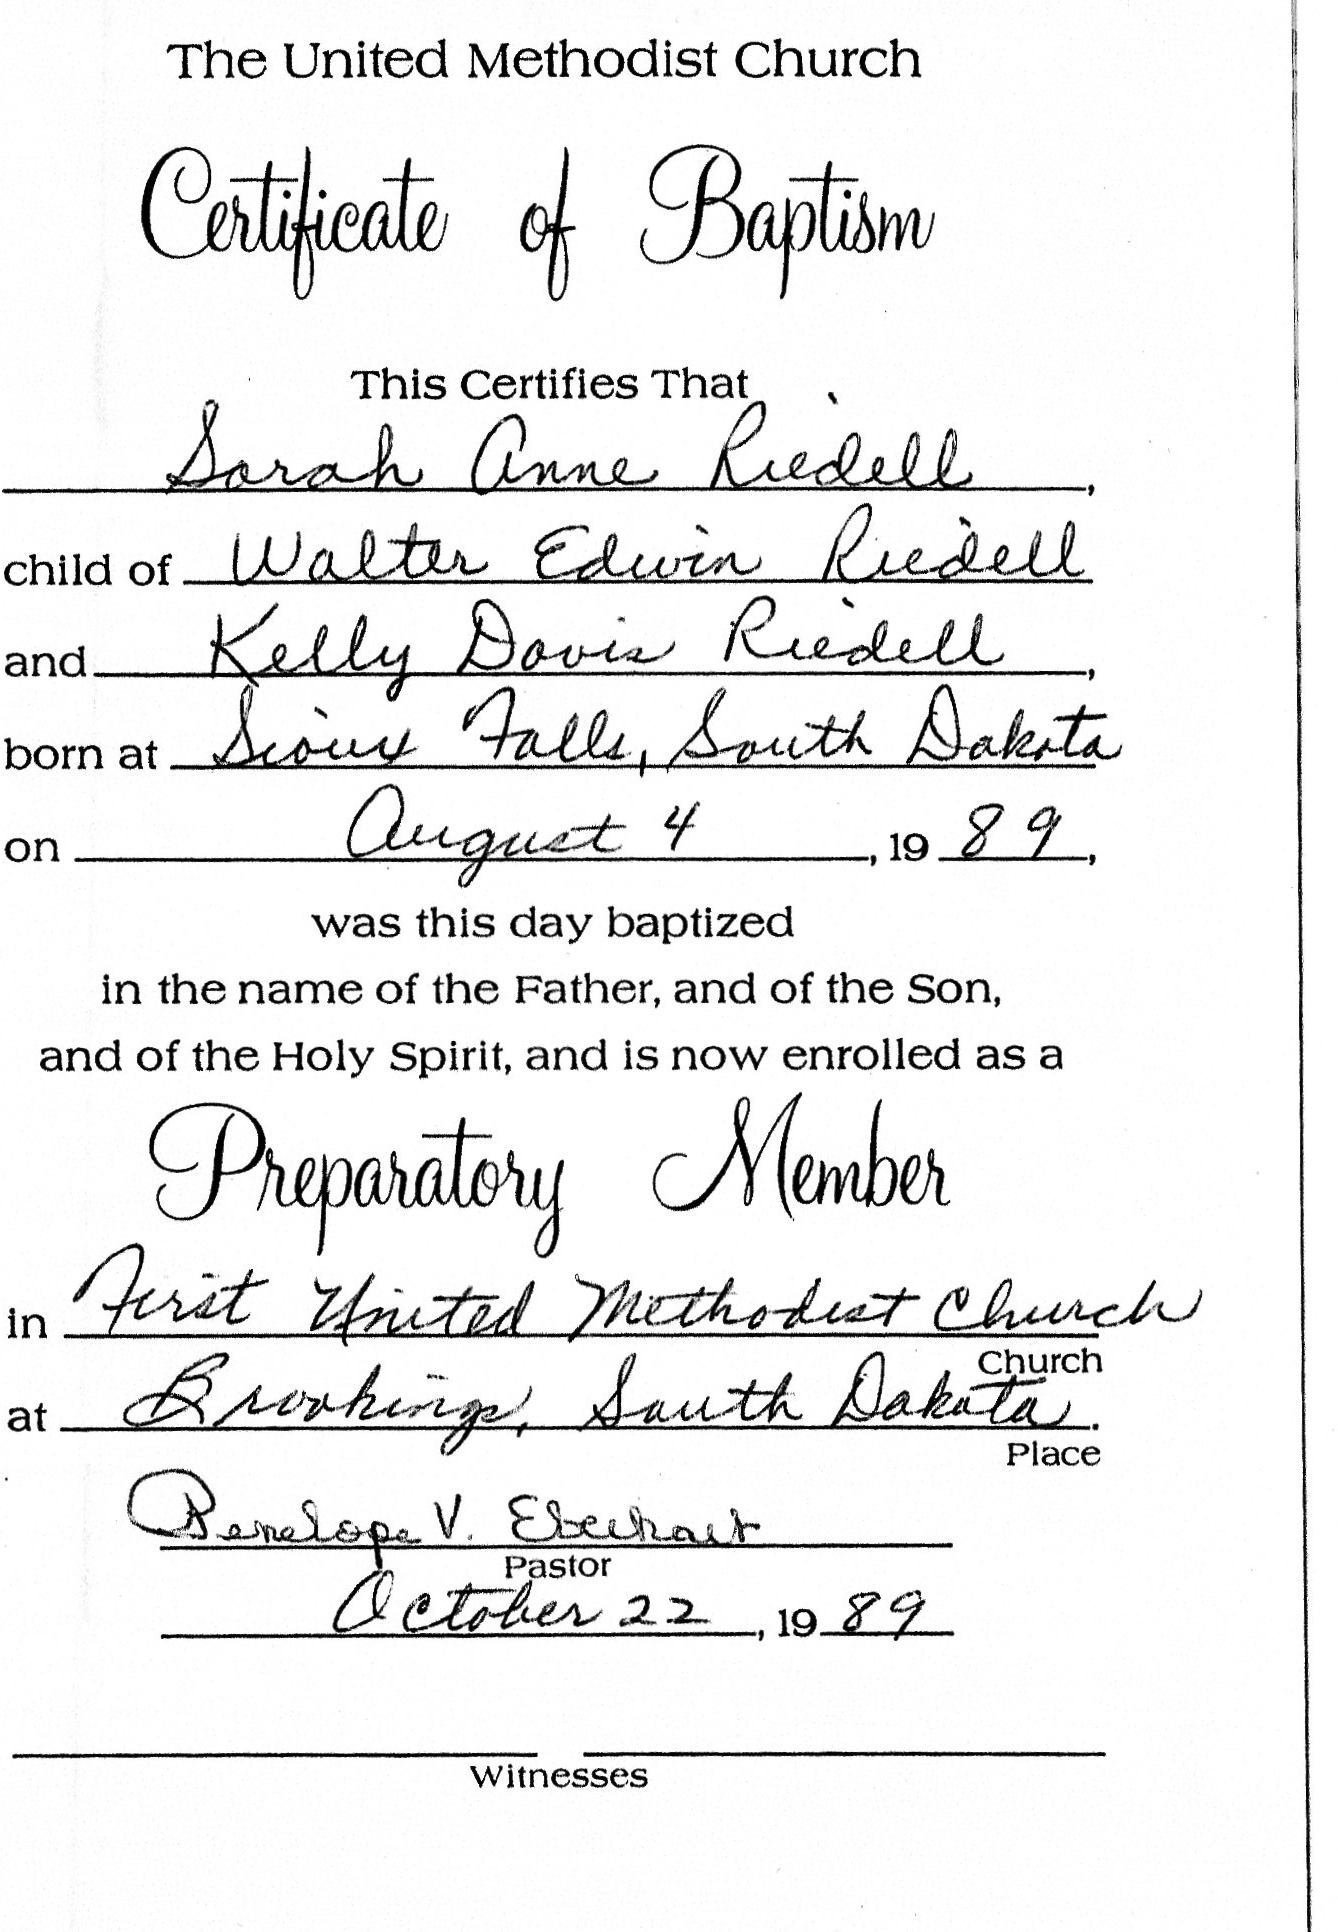 The United Methodist Church
Certificate of Baptism
This Certifies That
Sarah Anne Riedell,
child of Walter Edwin Riedell
and Kelly Davis Riedell,
born at Sioux Falls, South Dakota
on August 4, 1989,
was this day baptized
in the name of the Father, and of the Son,
and of the Holy Spirit, and is now enrolled as a
Preparatory Member
in First United Methodist Church
Church
at Brookings, South Dakota.
Place
Penelope V. Eberhart
Pastor
October 22, 1989
Witnesses